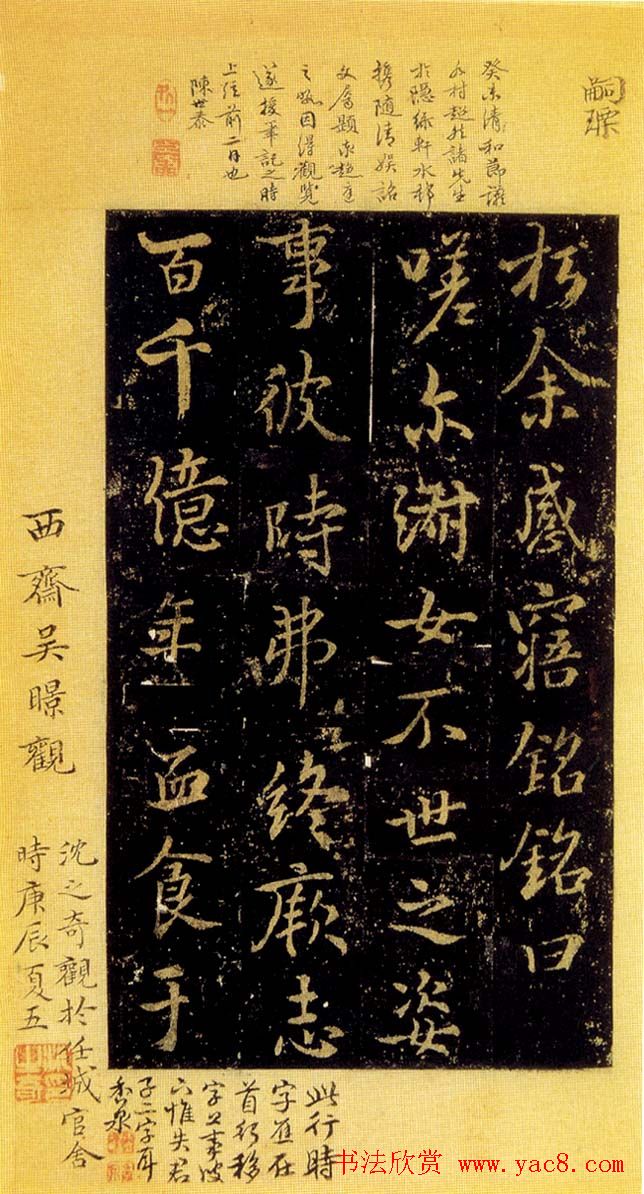 嗣瑮
癸未清和節讌
水村趙諸先生
於隱綠軒水邨
携隨清娱誌
文屬題
之暇因得觀覽
遂援筆記之時
上任前二日也
陳世泰
扵余感寤銘銘曰
嗟尔淑女不世之姿
事彼時弗終厥志
百千億年血食于
西齋吴暻觀
沈之奇觀扵任城官舍
時庚辰夏五
此行時
字應在
首行移
字上事彼
六惟失君
子二字耳
香泉
书法欣赏 www.yac8.com